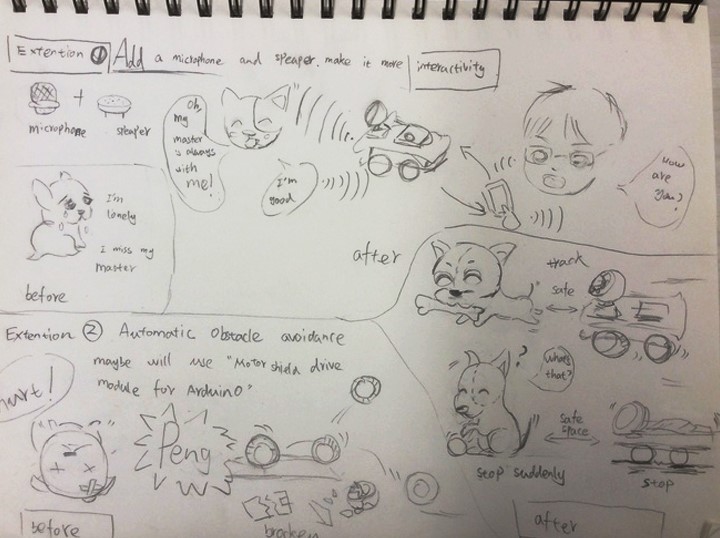 Extention ① Add a microphone and speaper. make it more interactivity
microphone + speaper
Oh,
my
master
is always
with
me!
I'm
good
How
are
you?
I'm
lonely
I miss my
master
before
after
track
safe
Extention ② Automatic Obstacle avoidance
maybe will use "Motor shield drive
module for Arduino"
hurt!
Peng
?
what's
that?
safe
space
stop suddenly
stop
before
after